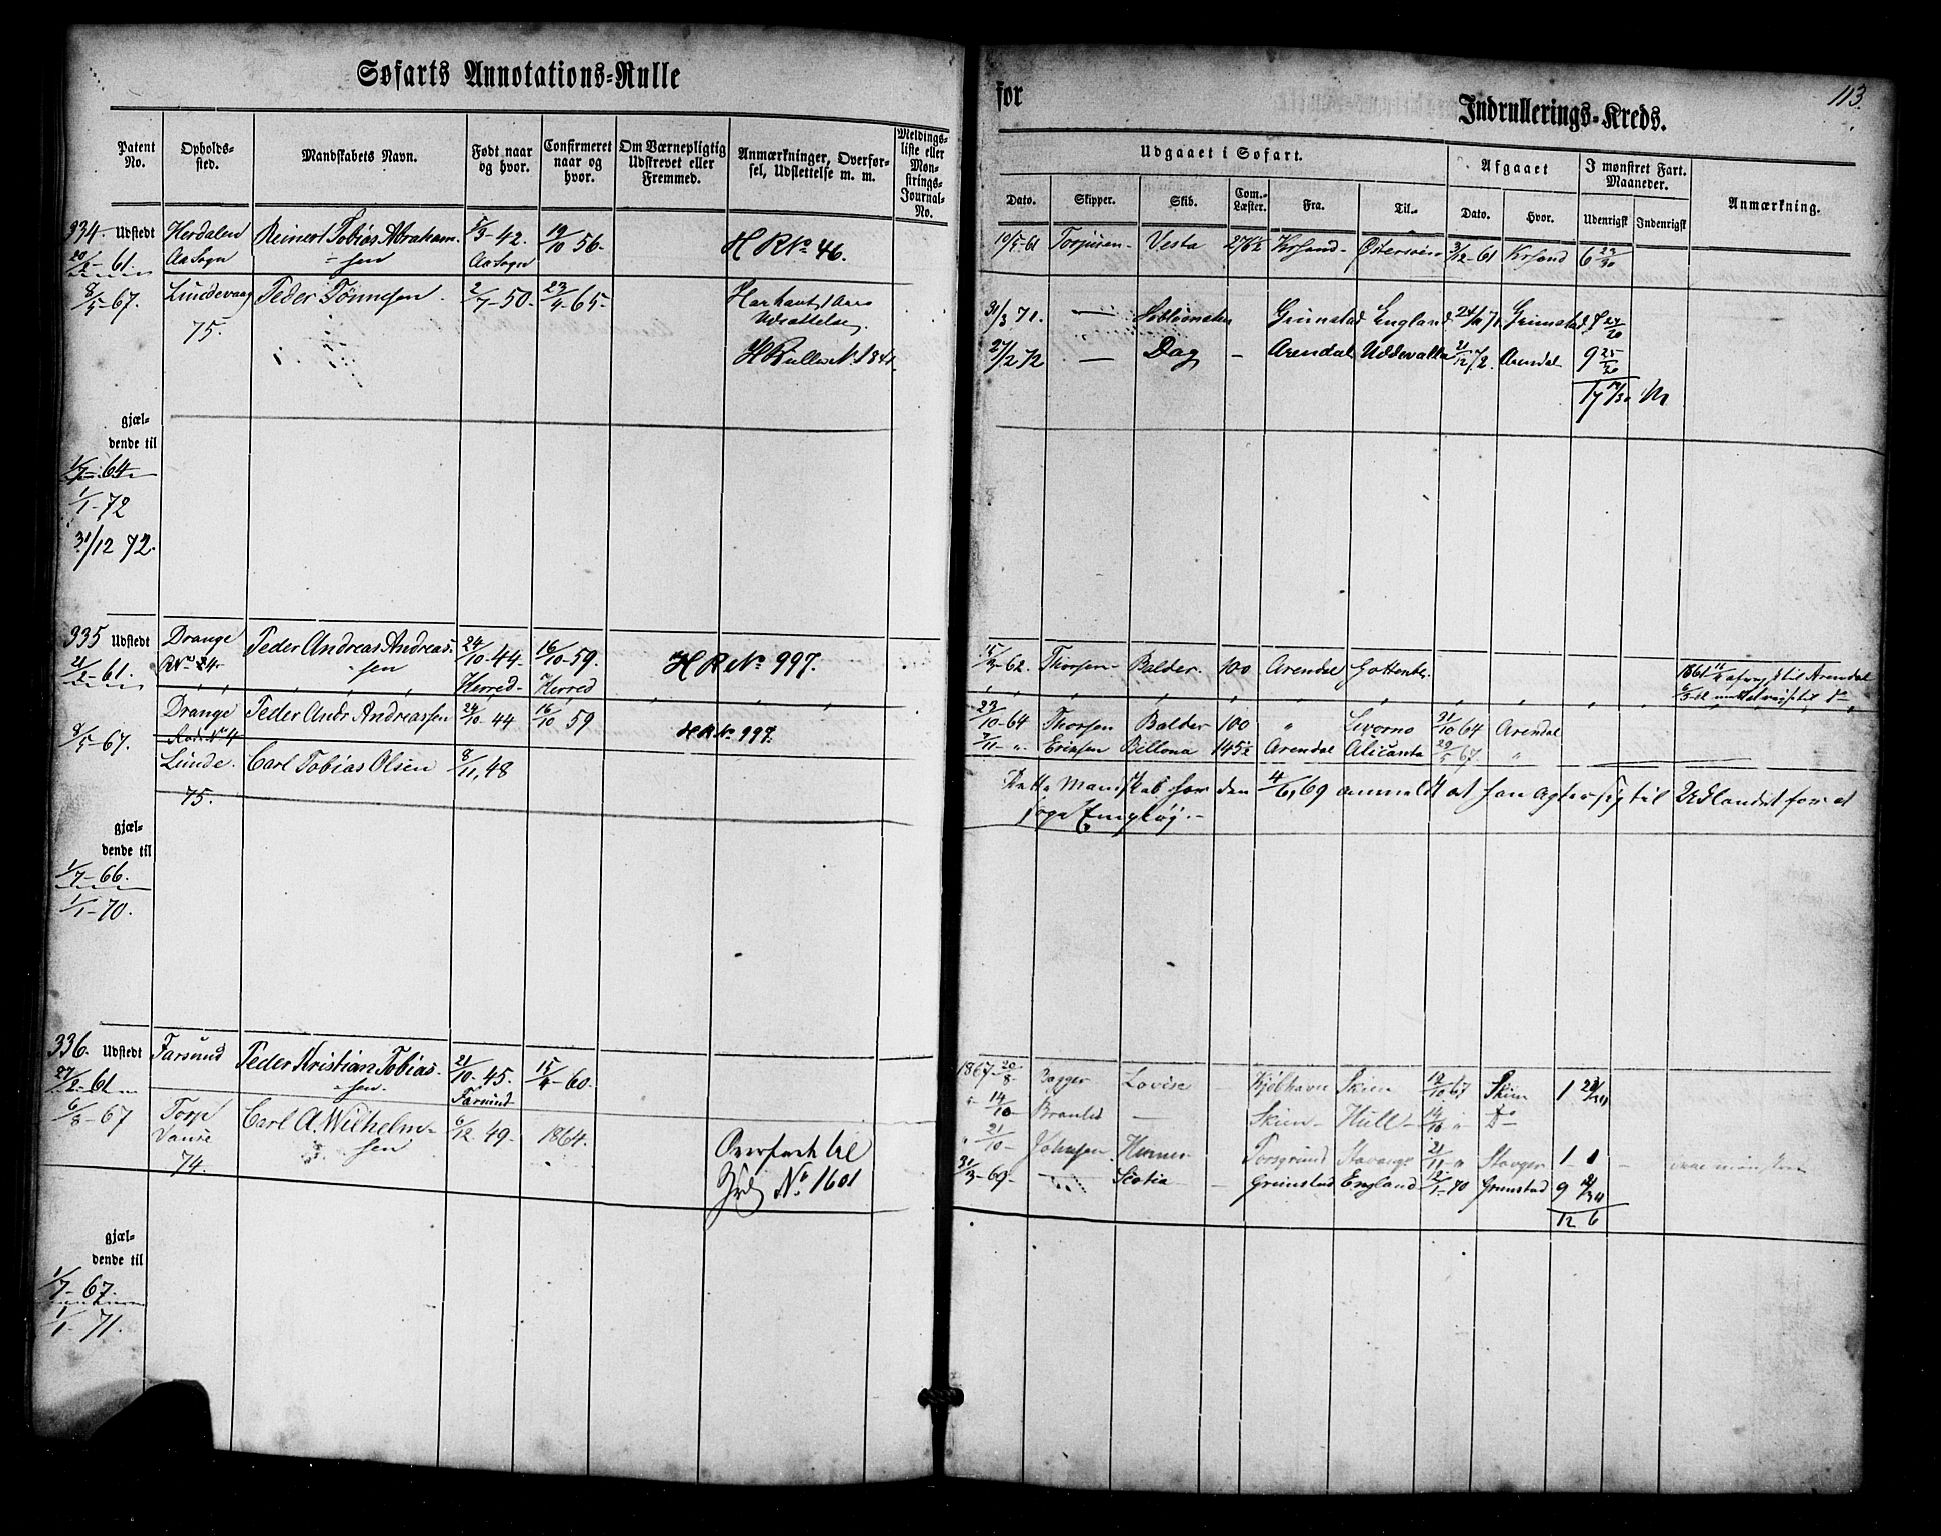 Søfarts Annotations-Rulle
for
Indrullerings-Kreds.
113.
Patent No.
Opholds-sted.
Mandskabets Navn.
Født naar og hvor.
Confirmeret naar og hvor.
Om Værnepligtig Udskrevet eller Fremmed.
Anmærkninger, Overførsel, Udslettelse m. m.
Meldingsliste eller Mønstrings-Journal-No.
Udgaaet i Søfart.
Afgaaet
I mønstret Fart. Maaneder.
Anmærkning.
Dato. Skipper. Skib. Com. Læster. Fra. Til. Dato. Hvor. Udenrigsk Indenrigsk
334. Udstedt Herdalen Reinert Tobias Abraham- 5/3-42. 19/10 56. H R No 46. 19/5-61 Vesta 276½ Krsand- Østersøen 3/12-61 Krsand 6 23/30
20/2-61. Aa Sogn sen Aa Sogn
8/5-67. Lundevaag Peder Tönnesen. 2/7-50. 23/4-65. 31/3 71. — Grimstad England 24/11 71 Grimstad 7 24/30
75. H Rulle No 1341. 27/2 72 — Dag — Arendal Uddevalla 21/12 72. Arendal 9 25/30
17 19/30 M
gjæl-
dende til
1/7-64
1/1-72
31/12 72.
335 Udstedt Drange Peder Andreas Andreas- 24/10-44. 16/10-59. H R No 997. 15/3-62. Thorsen Balder. 100 Arendal Gottenb.
21/2-61. R No 24. sen Herred Herred
Drange Peder Andr Andreassen 24/10 44 16/10 59 H R No 997. 23/10-64 Thorsen Balder 100 " Livorno 31/10 64 Arendal
8/5-67. Rode No 4
Lunde. Carl Tobias Olsen 8/11, 48 7/11- ". Eriksen Billona 145½ Arendal Alicanta 29/5 67. "
75. Dette Mandskab har den 4/6, 69 anmeldt at han agter sig til Udlandet for at
søge Empløy.-
gjæl-
dende til
1/7-66.
1/1-70.
336. Udstedt Farsund Peder Kristian Tobias- 21/10-45. 15/4-60. 1867-20/8- Lovise Kjøbhavn Skien 12/10 67 Skien 1 22/30
27/2-61. sen. Farsund " 14/10- — Skien- Hull- 14/10 " Do
6/8-67 Torp Carl A. Wilhelm- 6/12. 49- 1864. " 21/10- Johnsen Porsgrund Stavanger 21/11-" Stavger 1 1
Vanse sen Overført til 31/3-69- Scotia Grimstad England 12/1-70 Grimstad 9
74. No. 1601 12 6
gjæl-
dende til
1/7-67.
1/1-71.